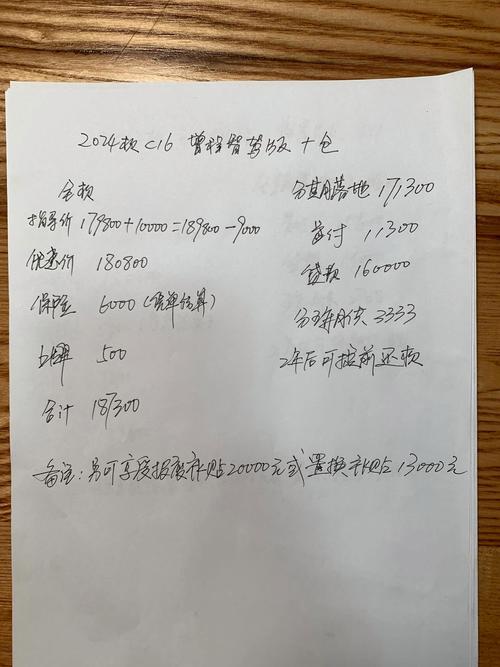 2024款 C16 增程智驾版 十仓
全款
指导价 179800+10000=189800-9000
优惠价 180800
保险 6000（凭单结算）
上牌 500
合计 187300
分期落地 171300
首付 11300
贷款 160000
分5年月供 3333
2年后可提前还款
备注：另可享受报废补贴20000元或置换补贴13000元